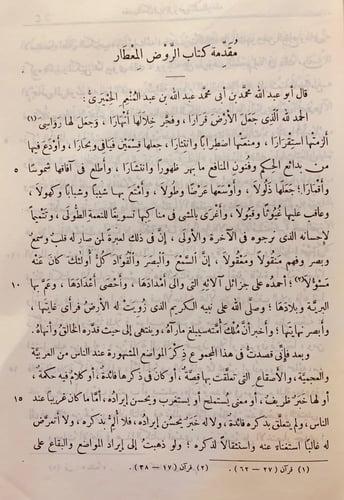 مُقَدِّمة كتاب الرَّوْض المِعْطَار
قال أبو عبد الله محمّد بن أبى محمّد عبد الله بن عبد المُنْعِم الحِمْيَرىّ :
الحمد لله الّذى جَعَلَ الأرْضَ قَرَارًا ، وفجّر خِلَالَها أنْهَارًا ، وجَعَلَ لها رَوَاسِىَ (١)
أَلزمتْها اسْتِقْرَارًا ، ومنعتْها اضطرابًا وانتثارًا ، جعلها قِسمَيْن فَيَافِىَ وبحَارًا ، وأوْدَعَ فيها
٥ من بدائع الحِكَم وفُنون المنافع ما بهر ظهورًا وانتشارًا ، وأطلع فى آفاقها شموسًا
وأقمارًا ؛ جَعَلها ذَلُولًا ، وأوْسَعَها عَرْضًا وطُولًا ، وأمْتَعَ بها شِيبًا وشبانًا وكهولًا ،
وعاقب عليها غُيُوثًا وقَبُولًا ، وأغْرَى بالمشى فى مناكِبها تسويفًا للنعمة الطُّولَى ، وتتميمًا
لإحسانه الّذى نرجوه فى الآخرة والأولى ، إنّ فى ذلك لعبرةً لمن صار له قلبٌ وسمعٌ
وبصر وفهم مَنْقُولًا ومَعْقُولًا ، إنّ السَّمْعَ والْبَصَرَ والْفُؤَادَ كُلُّ أُولَئِكَ كَانَ عَنْهُ
١٠ مَسْئُولًا (٢) ؛ أحمده على جزائل آلائه الّتى والى أمْدَادَها ، وأحْصَى أعْدَادَها ، وعَمَّ بها
البريّة وبلادَها ؛ وصلّى الله على نبيه الكريم الّذى زُوِيَتْ له الأرضُ فرأى غايتَها ،
وأبصر نهايتَها ؛ وأخبر أنّ مُلك أمَّته سيبلغ ما رآهُ ، وينتهى إلى حيث قدّره الخالقُ وأنهاهُ .
وبعد فإنّى قصدتُ فى هذا المجموع ذِكْرَ المَوَاضِع المشهورة عند الناس من العربيّة
والعجميّة ، والأصقاعِ الّتى تعلّقت بها قصّةٌ ، أو كان فى ذكرها فائدةٌ ، أو كلامٌ فيه حكمة ،
١٥ أو لها خبرٌ ظَرِيف ، أو معنى يُستملح أو يُستغرب ويحسن إيرادُه ، أمّا ما كان غريبًا عند
الناس ، ولم يتعلّق بذكره فائدةٌ ، ولا له خبرٌ يحسن إيرادُه ، فلا أُلِمُّ بذكره ، ولا أتعرَّض
له غالبًا استغناءً عنه واستثقالًا لذكره ؛ ولو ذهبتُ إلى إيراد المواضع والبقاع على
(١) قرآن (٢٧ — ٦٢) . (٢) قرآن (١٧ — ٣٨) .